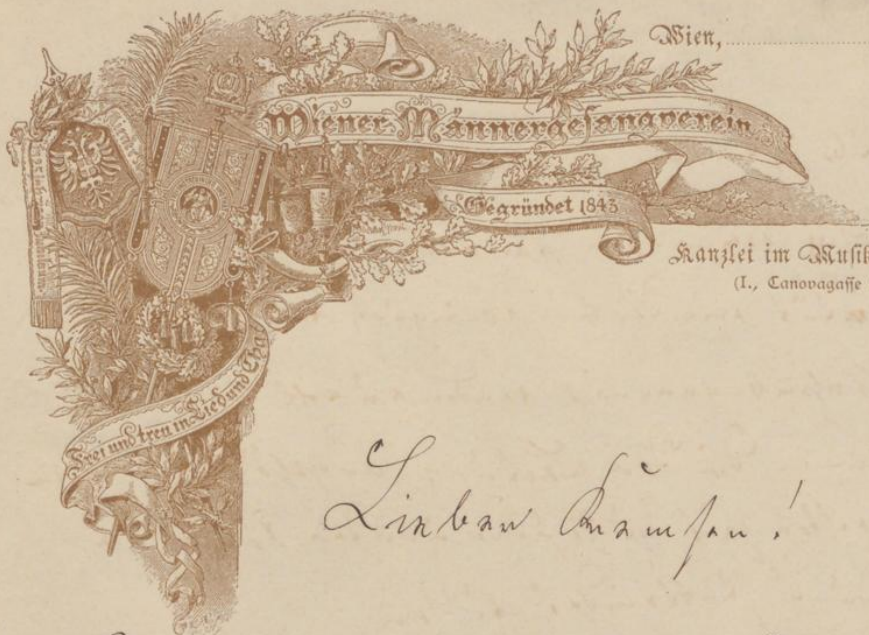 Wien,
Wiener Männergesangverein
Gegründet 1843
Kanzlei im Musik
(I., Canovagasse
Frei und treu in Lied und Tha
Lieber